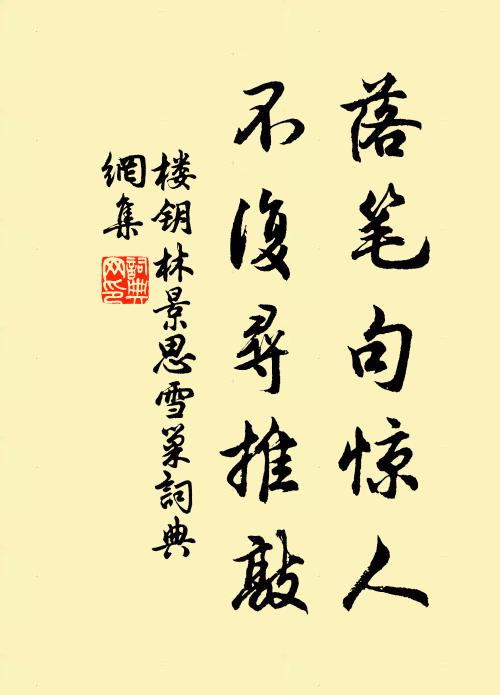 落笔句惊人
不復尋推敲
楼钥林景思雪巢詞典
網集
詞典
网印